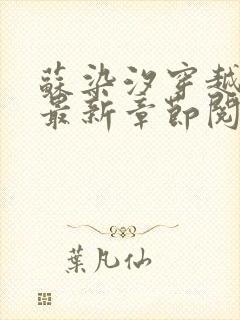 蘇染汐穿越
最新章節閱
葉凡仙